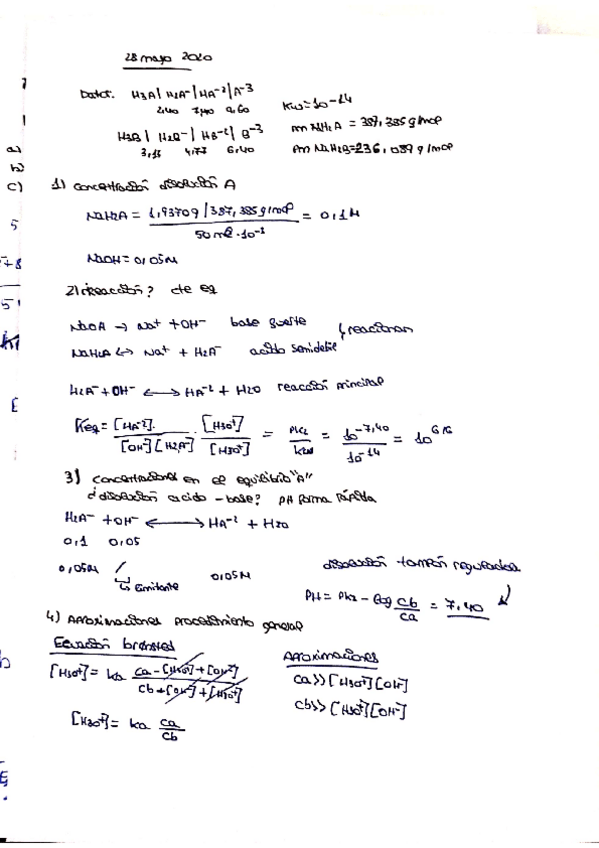 28 mayo 2020
Datos: H3A | H2A⁻ | HA⁻² | A⁻³
2,40 7,40 9,60
Kw = 10⁻¹⁴
H3B | H2B⁻ | HB⁻² | B⁻³
3,13 4,77 6,40
Pm NaH2A = 387,385 g/mol
Pm NaH2B = 236,089 g/mol
a)
b)
c)
1) Concentración disolución A
NaH2A = 1,9370g / 387,385 g/mol / 50 ml · 10⁻³ = 0,1M
NaOH = 0,05M
2) ¿Reacción? cte eq
NaOA → Na⁺ + OH⁻ base fuerte
NaH2A ↔ Na⁺ + H2A⁻ acido semidebil
} reaccionan
H2A⁻ + OH⁻ ↔ HA⁻² + H2O reacción principal
Keq = [HA⁻²] / [OH⁻][H2A⁻] · [H3O⁺] / [H3O⁺] = = 10⁻⁷,⁴⁰ / 10⁻¹⁴ = 10⁶,⁶
3) Concentraciones en el equilibrio "A"
¿disolución acido-base? PH forma rápida
H2A⁻ + OH⁻ ↔ HA⁻² + H2O
0,1 0,05
0,05M / 0,05M
↳ limitante
disolución tampón reguladora
PH = PK2 - log cb/ca = 7,40
4) Aproximaciones procedimiento general
Ecuación brønsted
[H3O⁺] = ka ca - [H3O⁺] + [OH⁻] / cb + [OH⁻] + [H3O⁺]
[H3O⁺] = ka ca/cb
Aproximaciones
ca >> [H3O⁺] [OH⁻]
cb >> [H3O⁺] [OH⁻]